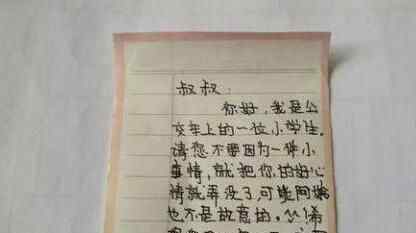 叔叔:
你好,我是公
交车上的一位小学生.
请您不要因为一件小
事情,就把你的好心
情就弄没了,可能阿姨
也不是故意的,